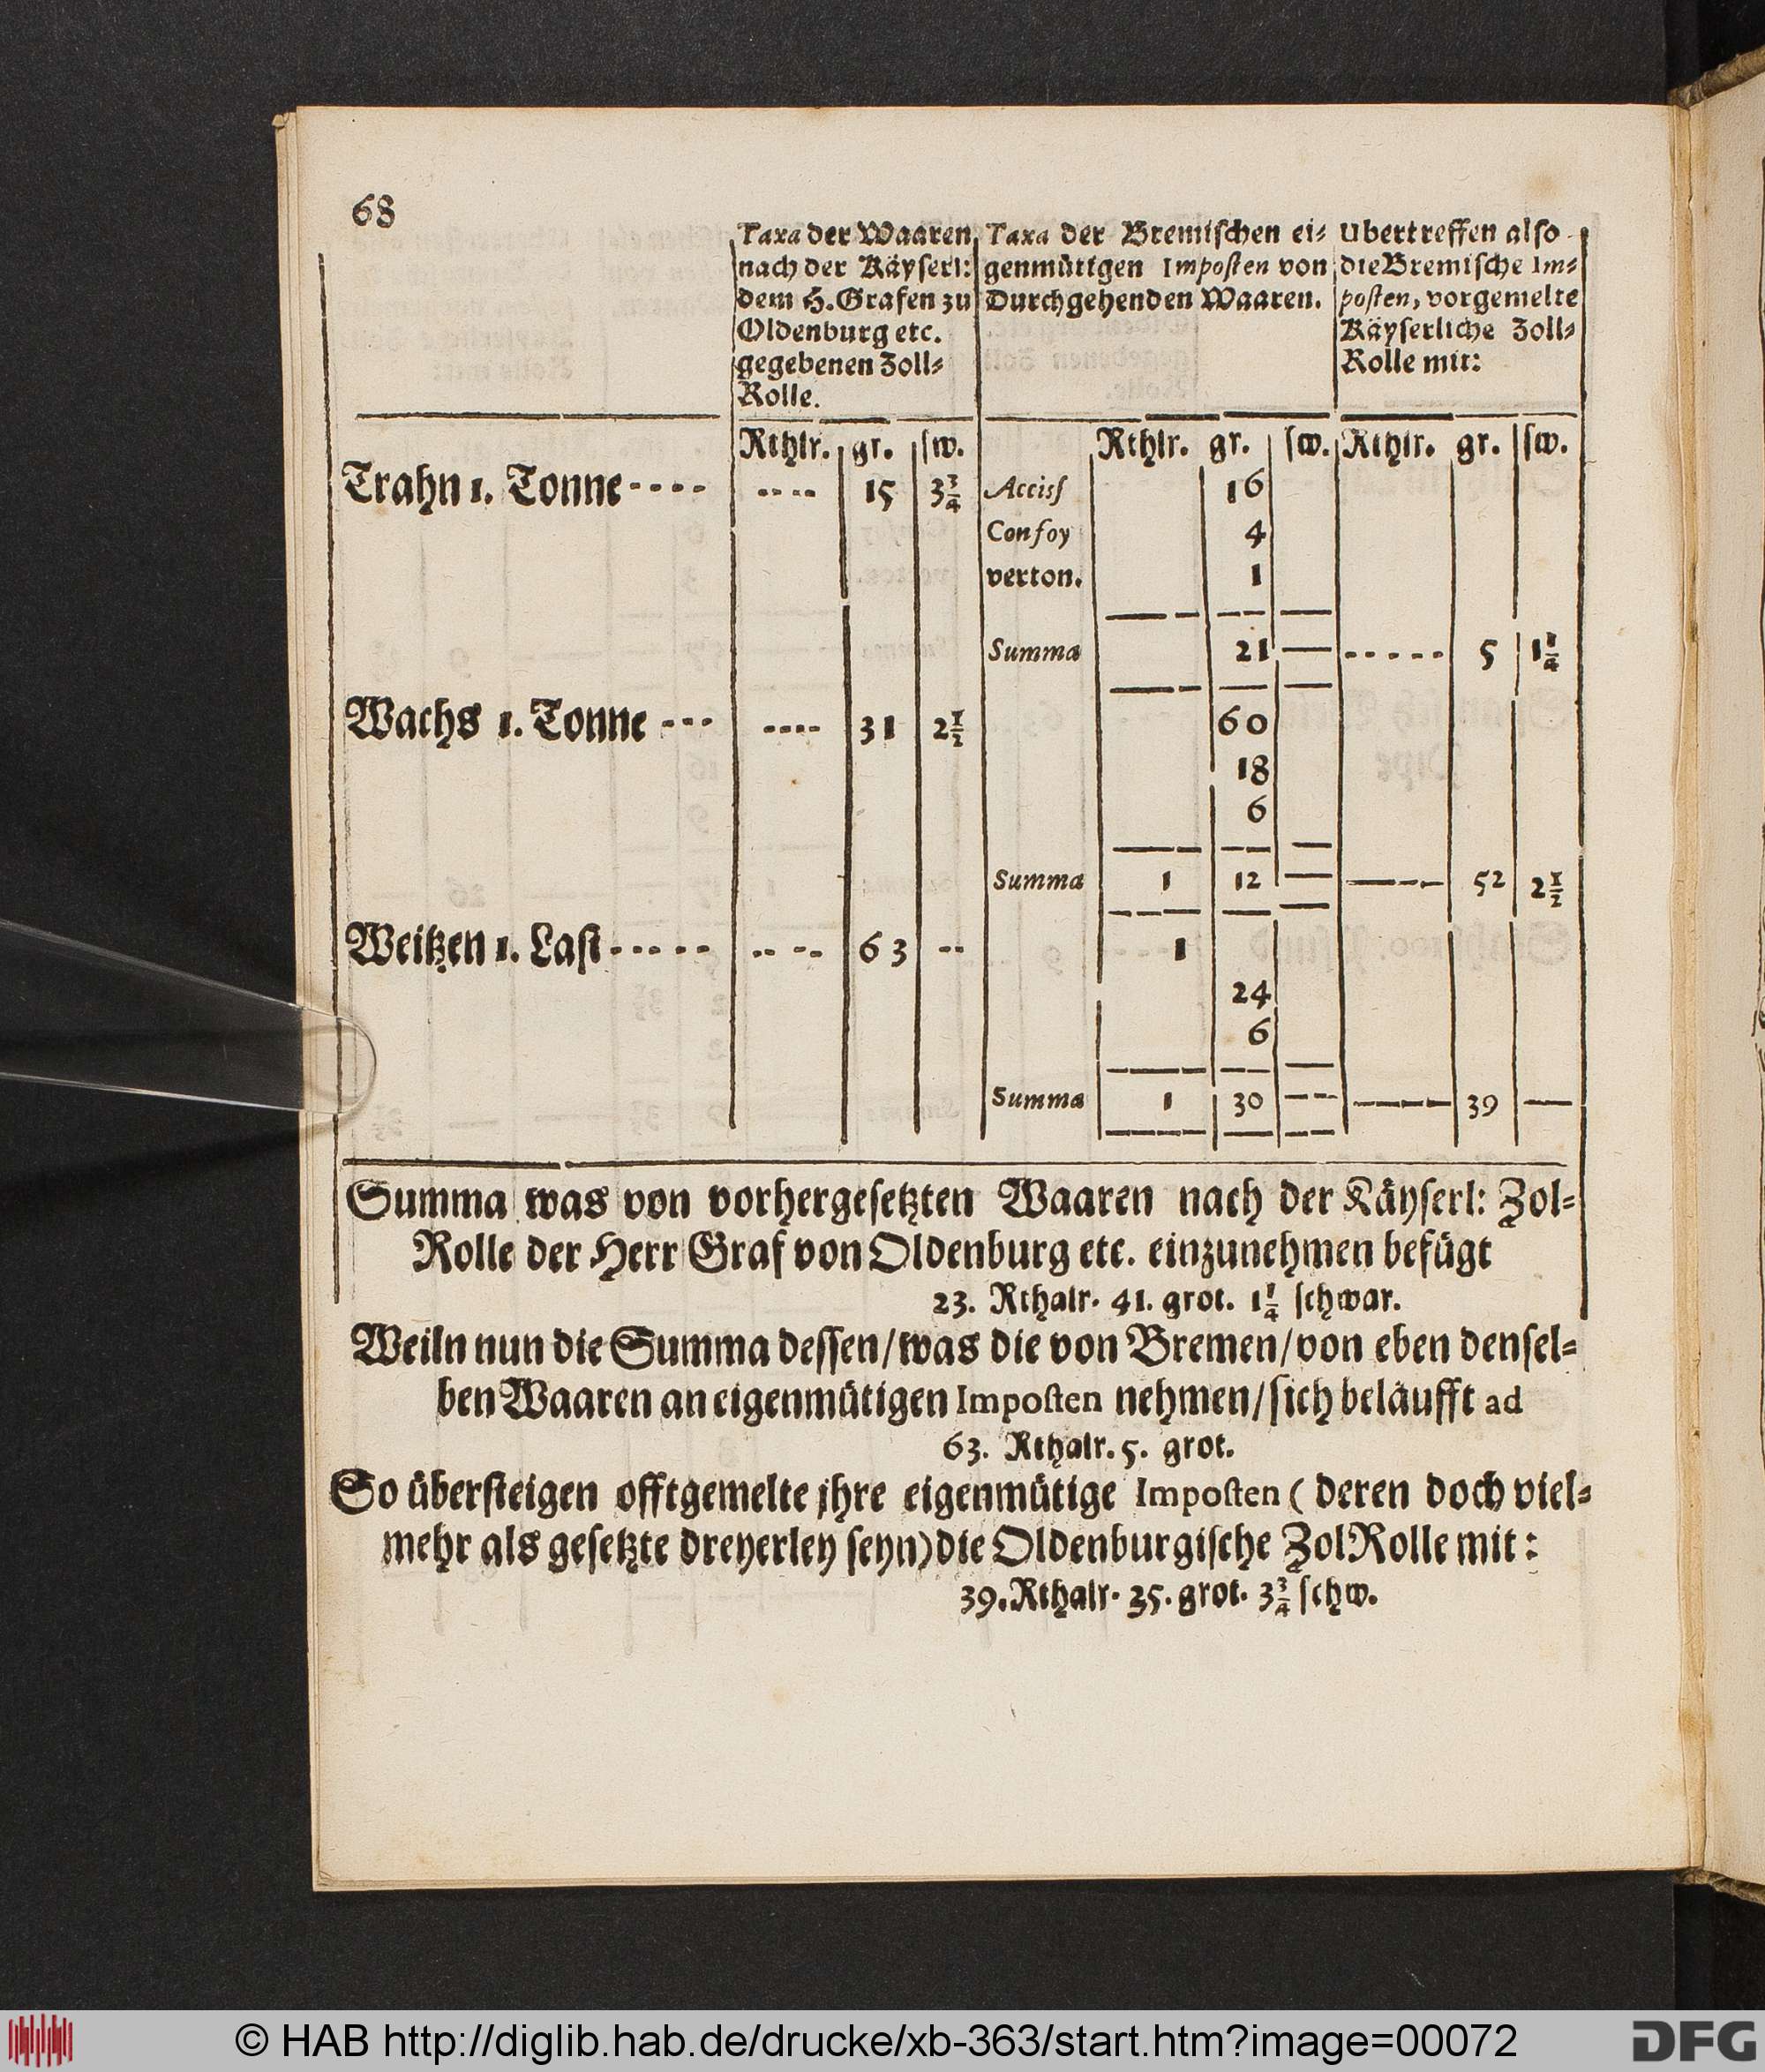 68
Taxa der Waaren nach der Käyserl: dem H. Grafen zu Oldenburg etc. gegebenen Zoll-Rolle.
Taxa der Bremischen eigenmütigen Imposten von Durchgehenden Waaren.
Ubertreffen also die Bremische Imposten, vorgemelte Käyserliche Zoll-Rolle mit:
Rthlr. gr. sw. Rthlr. gr. sw. Rthlr. gr. sw.
Trahn 1. Tonne ---- ---- 15 3 3/4 Acciss 16
Confoy 4
verton. 1
Summa 21 — ----- 5 1 1/4
Wachs 1. Tonne --- ---- 31 2 1/2 60
18
6
Summa 1 12 — ---- 52 2 1/2
Weitzen 1. Last ----- ---- 63 -- 1
24
6
Summa 1 30 --- ---- 39 —
Summa was von vorhergesetzten Waaren nach der Käyserl: Zol-
Rolle der Herr Graf von Oldenburg etc. einzunehmen befügt
23. Rthalr. 41. grot. 1 1/4 schwar.
Weiln nun die Summa dessen/was die von Bremen/von eben densel-
ben Waaren an eigenmütigen Imposten nehmen/sich beläufft ad
63. Rthalr. 5. grot.
So übersteigen offtgemelte jhre eigenmütige Imposten (deren doch viel-
mehr als gesetzte dreyerley seyn) die Oldenburgische ZolRolle mit:
39. Rthalr. 35. grot. 3 3/4 schw.
© HAB http://diglib.hab.de/drucke/xb-363/start.htm?image=00072
DFG